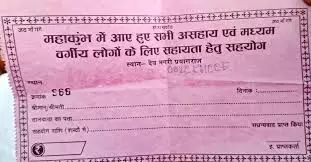 जय माँ गंगे जय माँ गंगे
महाकुंभ में आए हुए सभी असहाय एवं मध्यम
वर्गीय लोगों के लिए सहायता हेतु सहयोग
स्थान- देव नगरी प्रयागराज
स्थान
क्रमांक 566 दिनांक :
श्रीमान्/श्रीमती
दानदाता का पता
सहयोग राशि (शब्दों में) धन्यवाद प्राप्त किया
ह. प्राप्तकर्ता